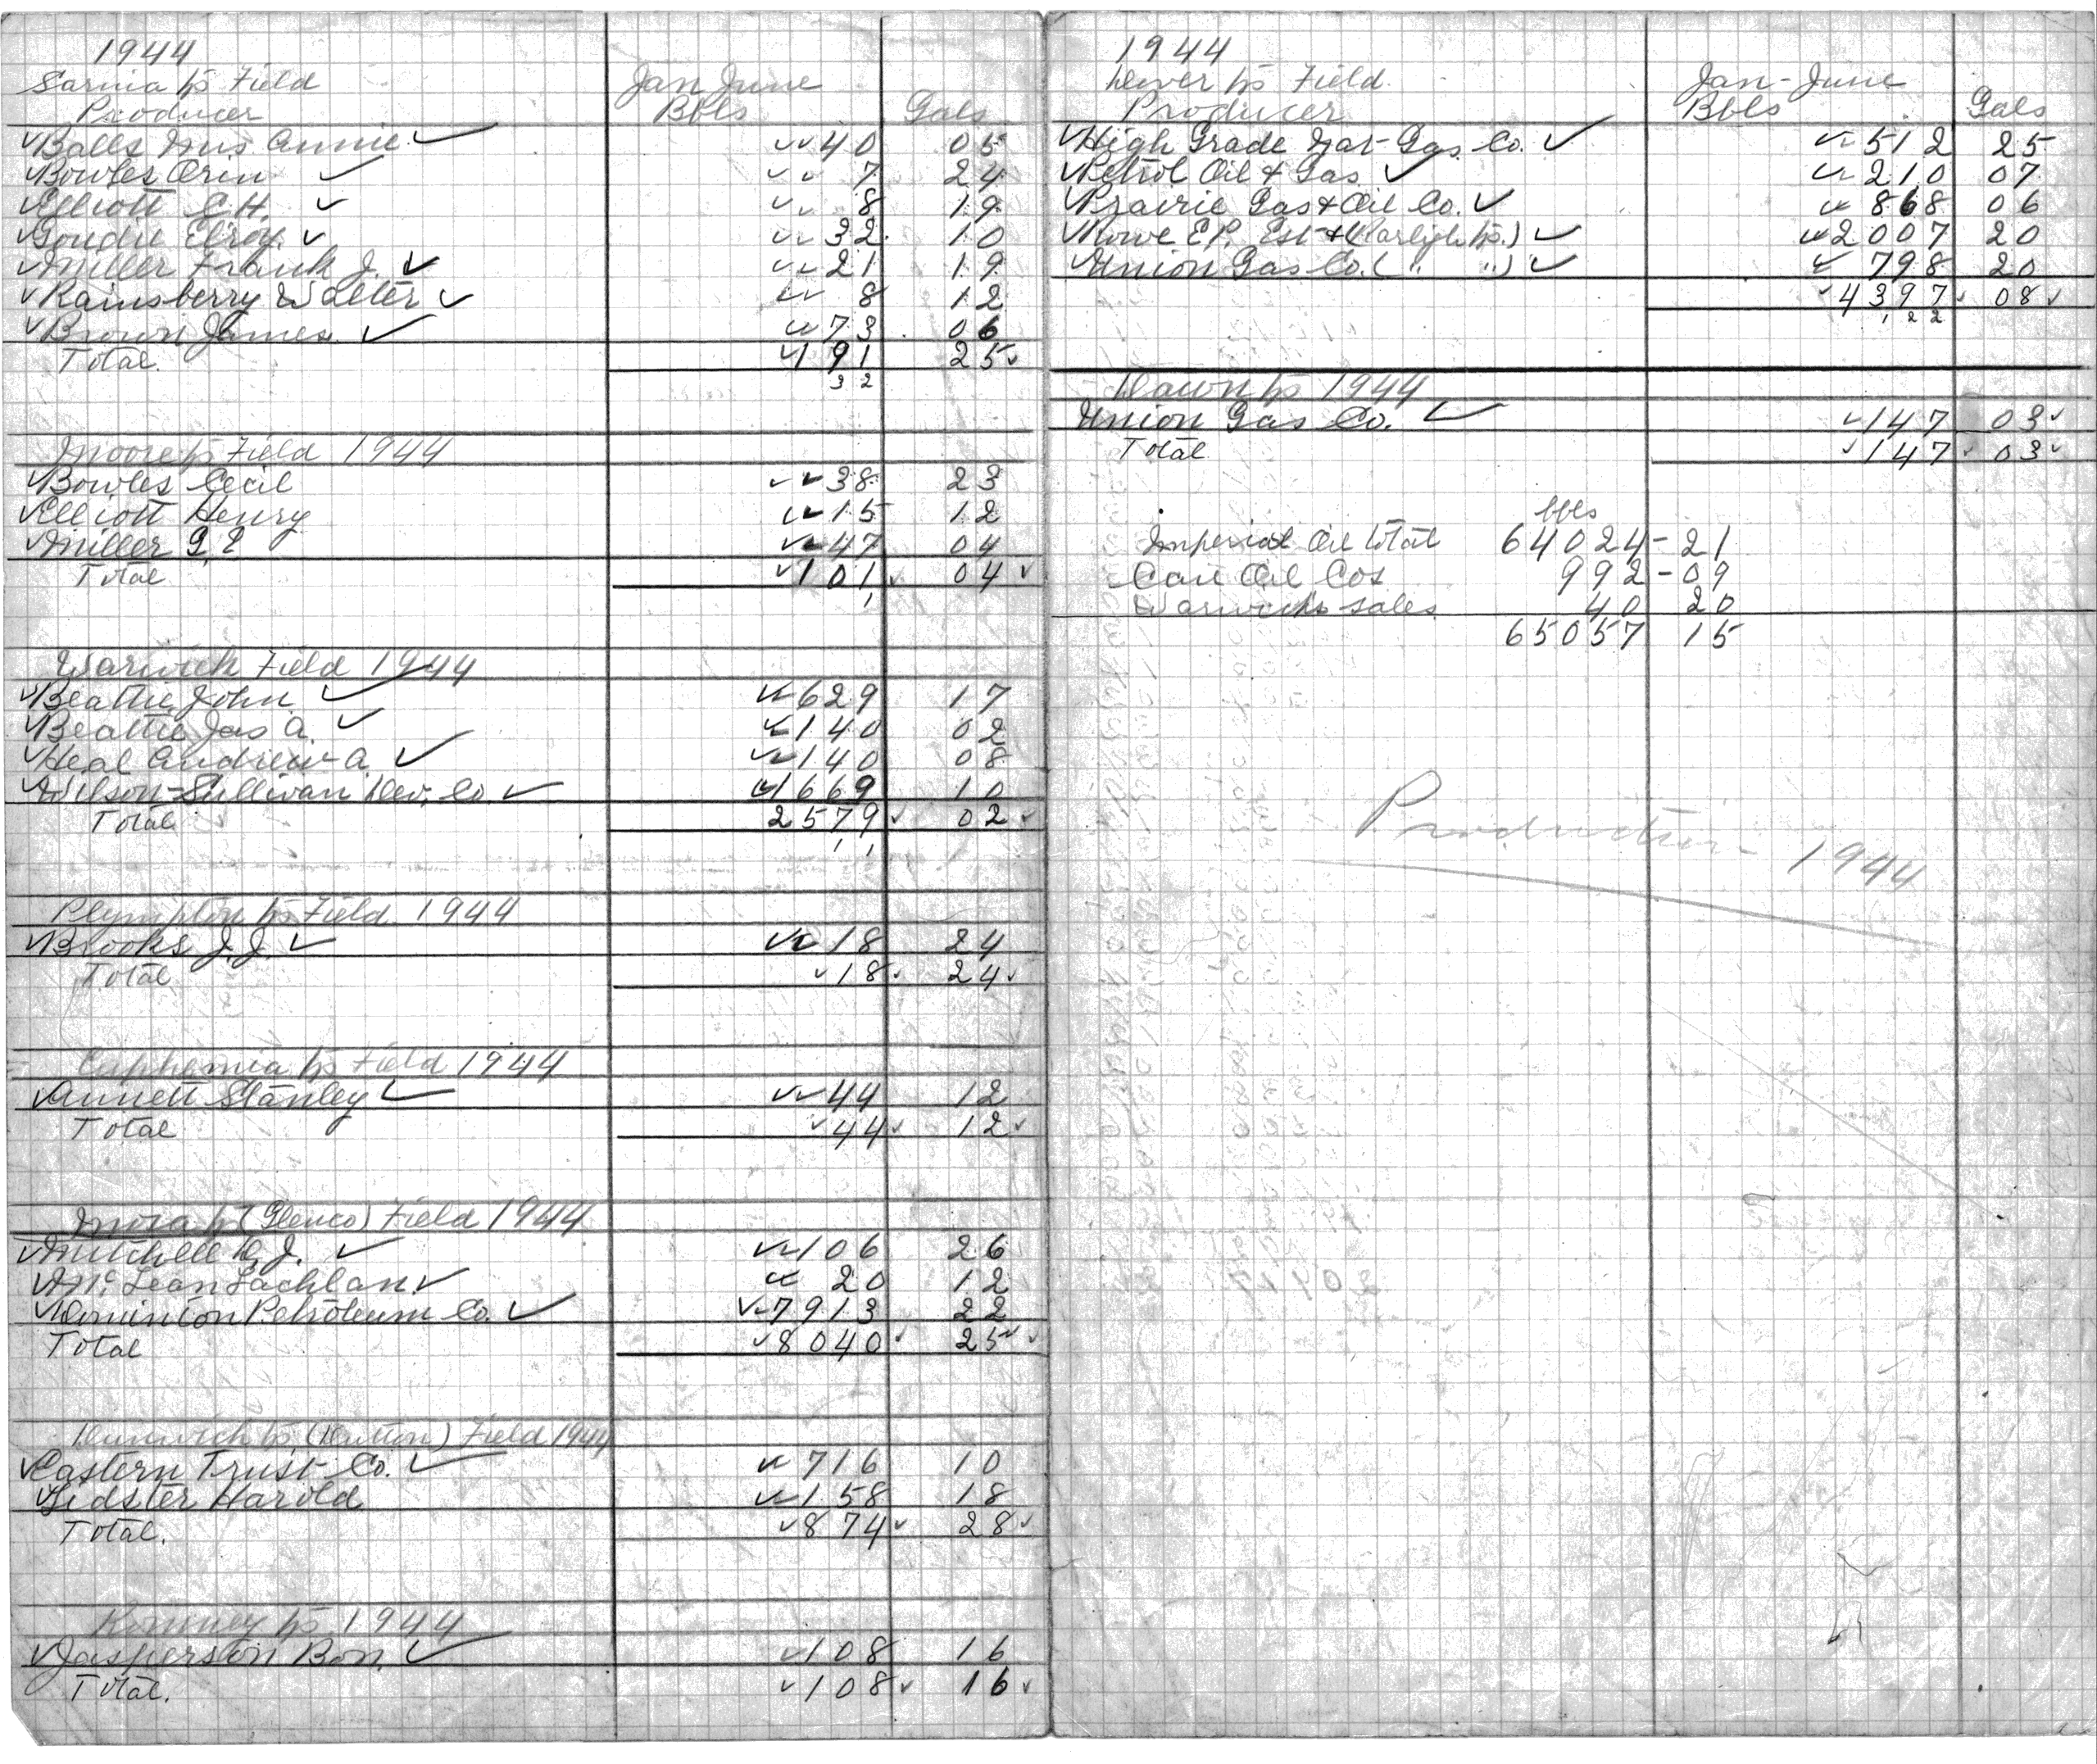 1944
Sarnia tp Field Jan June
Producer Bbls Gals
Balls Mrs. Annie 40 05
Bowles Orin 7 24
Elliott C.H. 8 19
Goudie Elroy 32 10
Miller Frank J. 21 19
Rainsberry Walter 8 12
Brown James 73 06
Total. 191 25
3 2
Moore tp Field 1944
Bowles Cecil 38 23
Elliott Henry 15 12
Miller 47 04
Total 101 04
1
Warwick Field 1944
Beattie John 629 17
Beattie Jas A. 140 02
Heal Andrew A. 140 08
Wilson-Sullivan Dev. Co. 1669 10
Total 2579 02
1 1
Plympton tp Field 1944
Brooks J.J. 18 24
Total 18 24
Euphemia tp Field 1944
Annett Stanley 44 12
Total 44 12
Mosa tp (Glenco) Field 1944
Mitchell D.J. 106 26
McLean Lachlan 20 12
Dominion Petroleum Co. 7913 22
Total 8040 25
Dunwich tp (Dutton) Field 1944
Eastern Trust Co. 716 10
Lidster Harold 158 18
Total. 874 28
Romney tp 1944
Jasperson Bon. 108 16
Total. 108 16
1944
Dover tp Field. Jan-June
Producer Bbls Gals
High Grade Nat Gas Co. 512 25
Petrol Oil & Gas 210 07
Prairie Gas & Oil Co. 868 06
Rowe E.P. Est & (Rarleigh tp.) 2007 20
Union Gas Co. ( " " ) 798 20
4397 08
1 2 2
Dawn tp 1944
Union Gas Co. 147 03
Total 147 03
bbls
Imperial Oil total 64024-21
Can Oil Cos 992-09
Warwicks sales 40 20
65057 15
Production 1944